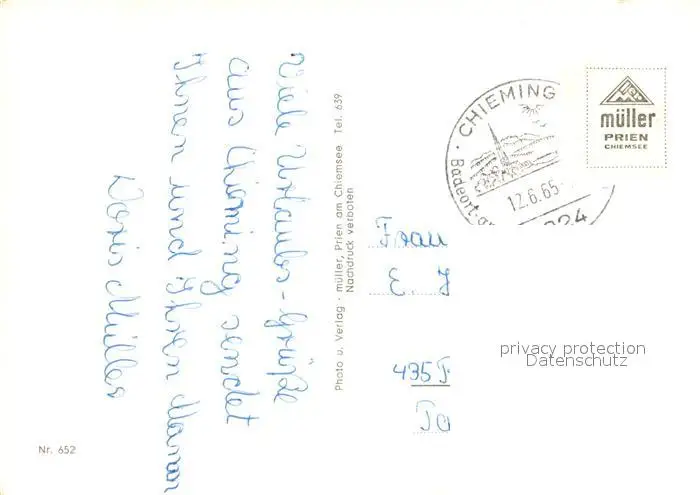 Viele Urlaubs-Grüße
aus Chieming sendet
Ihnen und Ihren Mann
Doris Müller
Photo u. Verlag · müller, Prien am Chiemsee Tel. 639
Nachdruck verboten
CHIEMING
Badeort
12.6.65
224
müller
PRIEN
CHIEMSEE
Frau
E. J
435
privacy protection
Datenschutz
Nr. 652